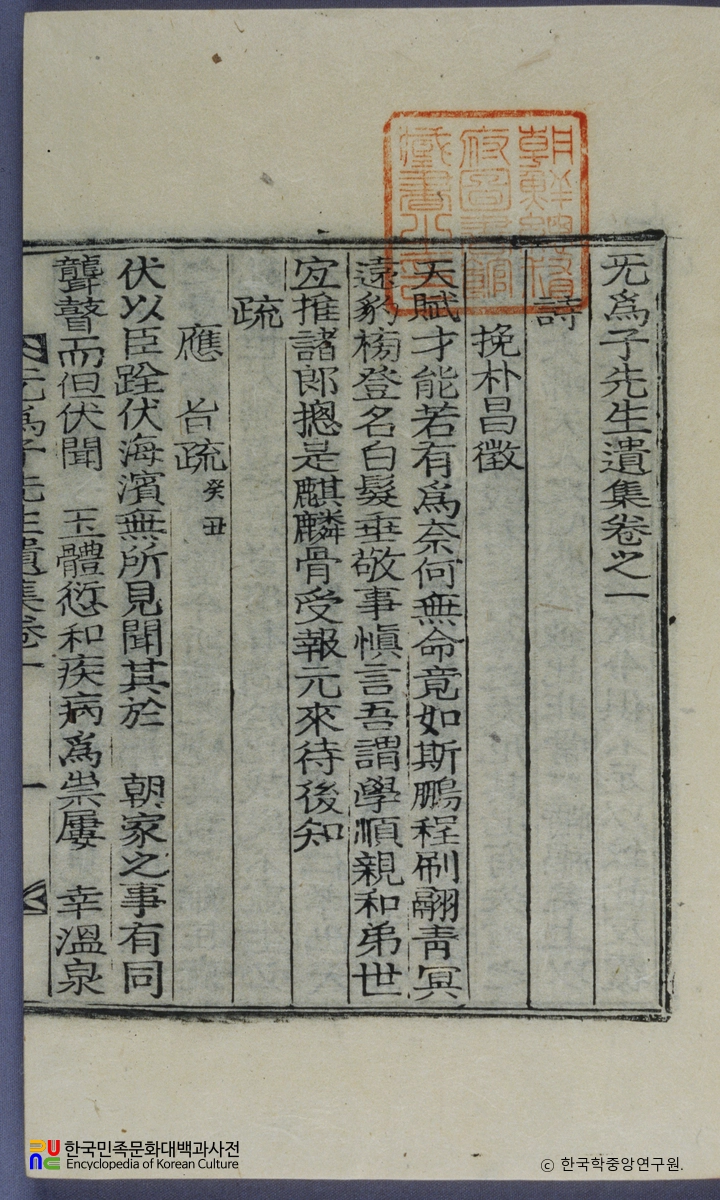 朝鮮總督
府圖書館
藏書之印
无爲子先生遺集卷之一
詩
挽朴昌徵
天賦才能若有爲奈何無命竟如斯鵬程刷翮靑冥
遠豹榜登名白髮垂敬事愼言吾謂學順親和弟世
宜推諸郎摠是麒麟骨受報元來待後知
疏
應 旨疏 癸丑
伏以臣跧伏海濱無所見聞其於 朝家之事有同
聾瞽而但伏聞 玉體愆和疾病爲祟屢 幸溫泉
无爲子先生遺集卷一 一
한국민족문화대백과사전
Encyclopedia of Korean Culture
ⓒ 한국학중앙연구원.